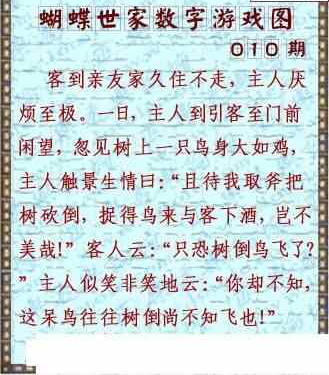 蝴蝶世家数字游戏图
010期
客到亲友家久住不走，主人厌
烦至极。一日，主人到引客至门前
闲望，忽见树上一只鸟身大如鸡，
主人触景生情曰：“且待我取斧把
树砍倒，捉得鸟来与客下酒，岂不
美哉！”客人云：“只恐树倒鸟飞了？
”主人似笑非笑地云：“你却不知，
这呆鸟往往树倒尚不知飞也！”